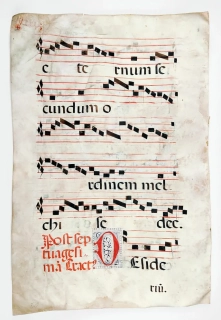 e te rnum se
cundum o
rdinem mel
chi se dec.
Post sep
tuagesi
mā Tract⁹
DEside
riū.